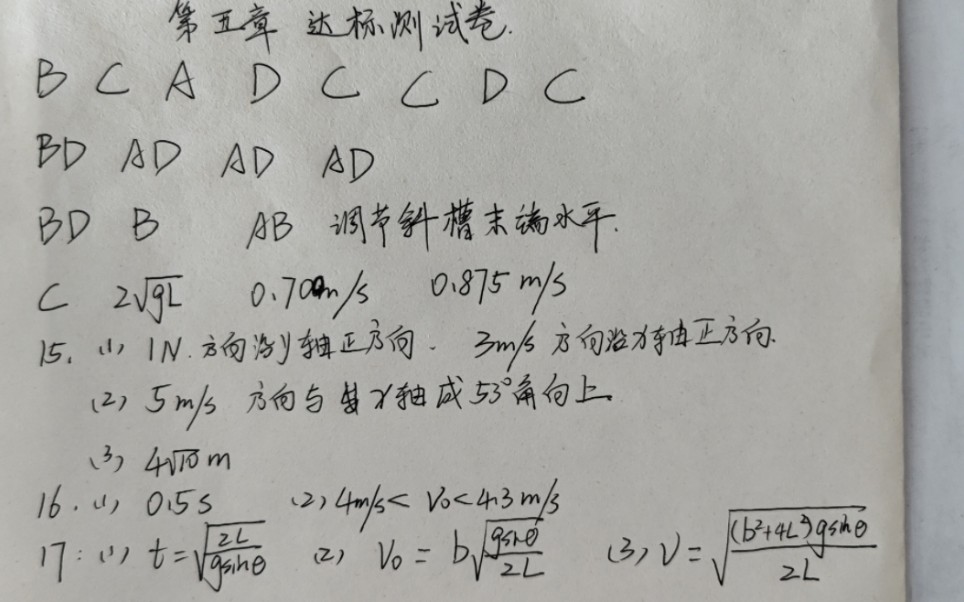 第五章 达标测试卷.
B C A D C C D C
BD AD AD AD
BD B AB 调节斜槽末端水平.
C 2√gL 0.70m/s 0.875 m/s
15. (1) 1N. 方向沿y轴正方向. 3m/s 方向沿x轴正方向.
(2) 5m/s 方向与x轴成53°角向上.
(3) 4√10 m
16. (1) 0.5s (2) 4m/s< V₀<4.3m/s
17: (1) t=√(2L/gsinθ) (2) V₀ = b√(gsinθ/2L) (3) V=√((b²+4L²)gsinθ/2L)